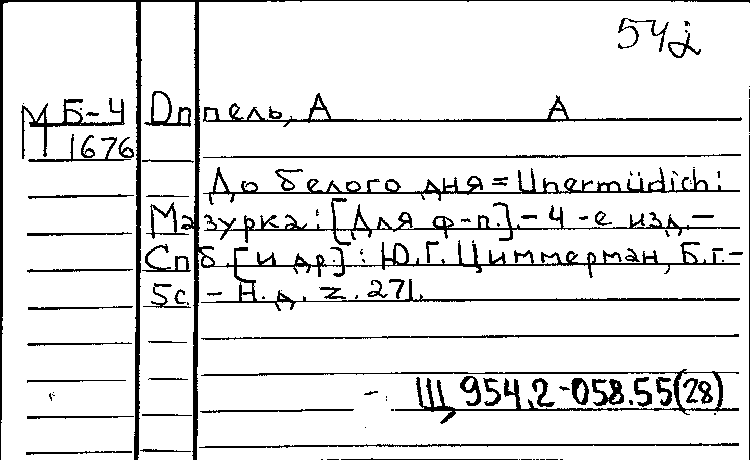 54j
М Б-4 Оппель, А А
П 1676
До белого дня = Unermüdich:
Мазурка: [Для ф-п.]. - 4-е изд. -
Спб. [и др.] : Ю.Г. Циммерман, Б.г. -
5с. - Н. д. Z. 271.
- Щ 954.2-058.55(28)